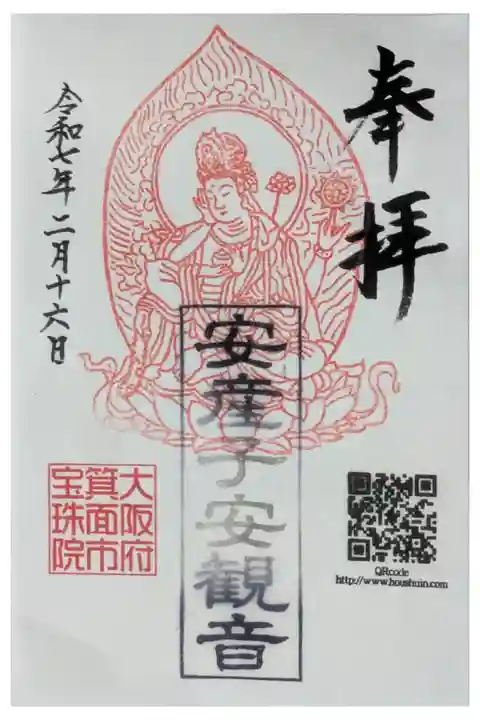 奉拝
安産子安観音
令和七年二月十六日
大阪府
箕面市
宝珠院
QRcode
http://www.houshuin.com